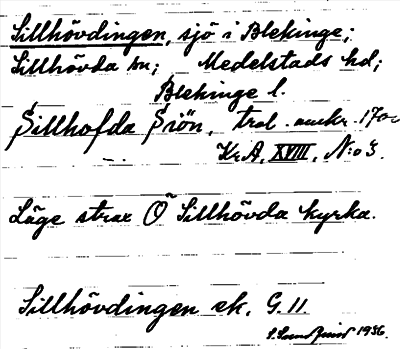 Sillhövdingen, sjö i Blekinge;
Sillhövda sn; Medelstads hd;
Blekinge l.
Sillhofda Siön, trol. omkr. 1700
Kr.A, XVIII, N:o 3.
Läge strax Ö Sillhövda kyrka.
Sillhövdingen ek. G. 11.
1936.